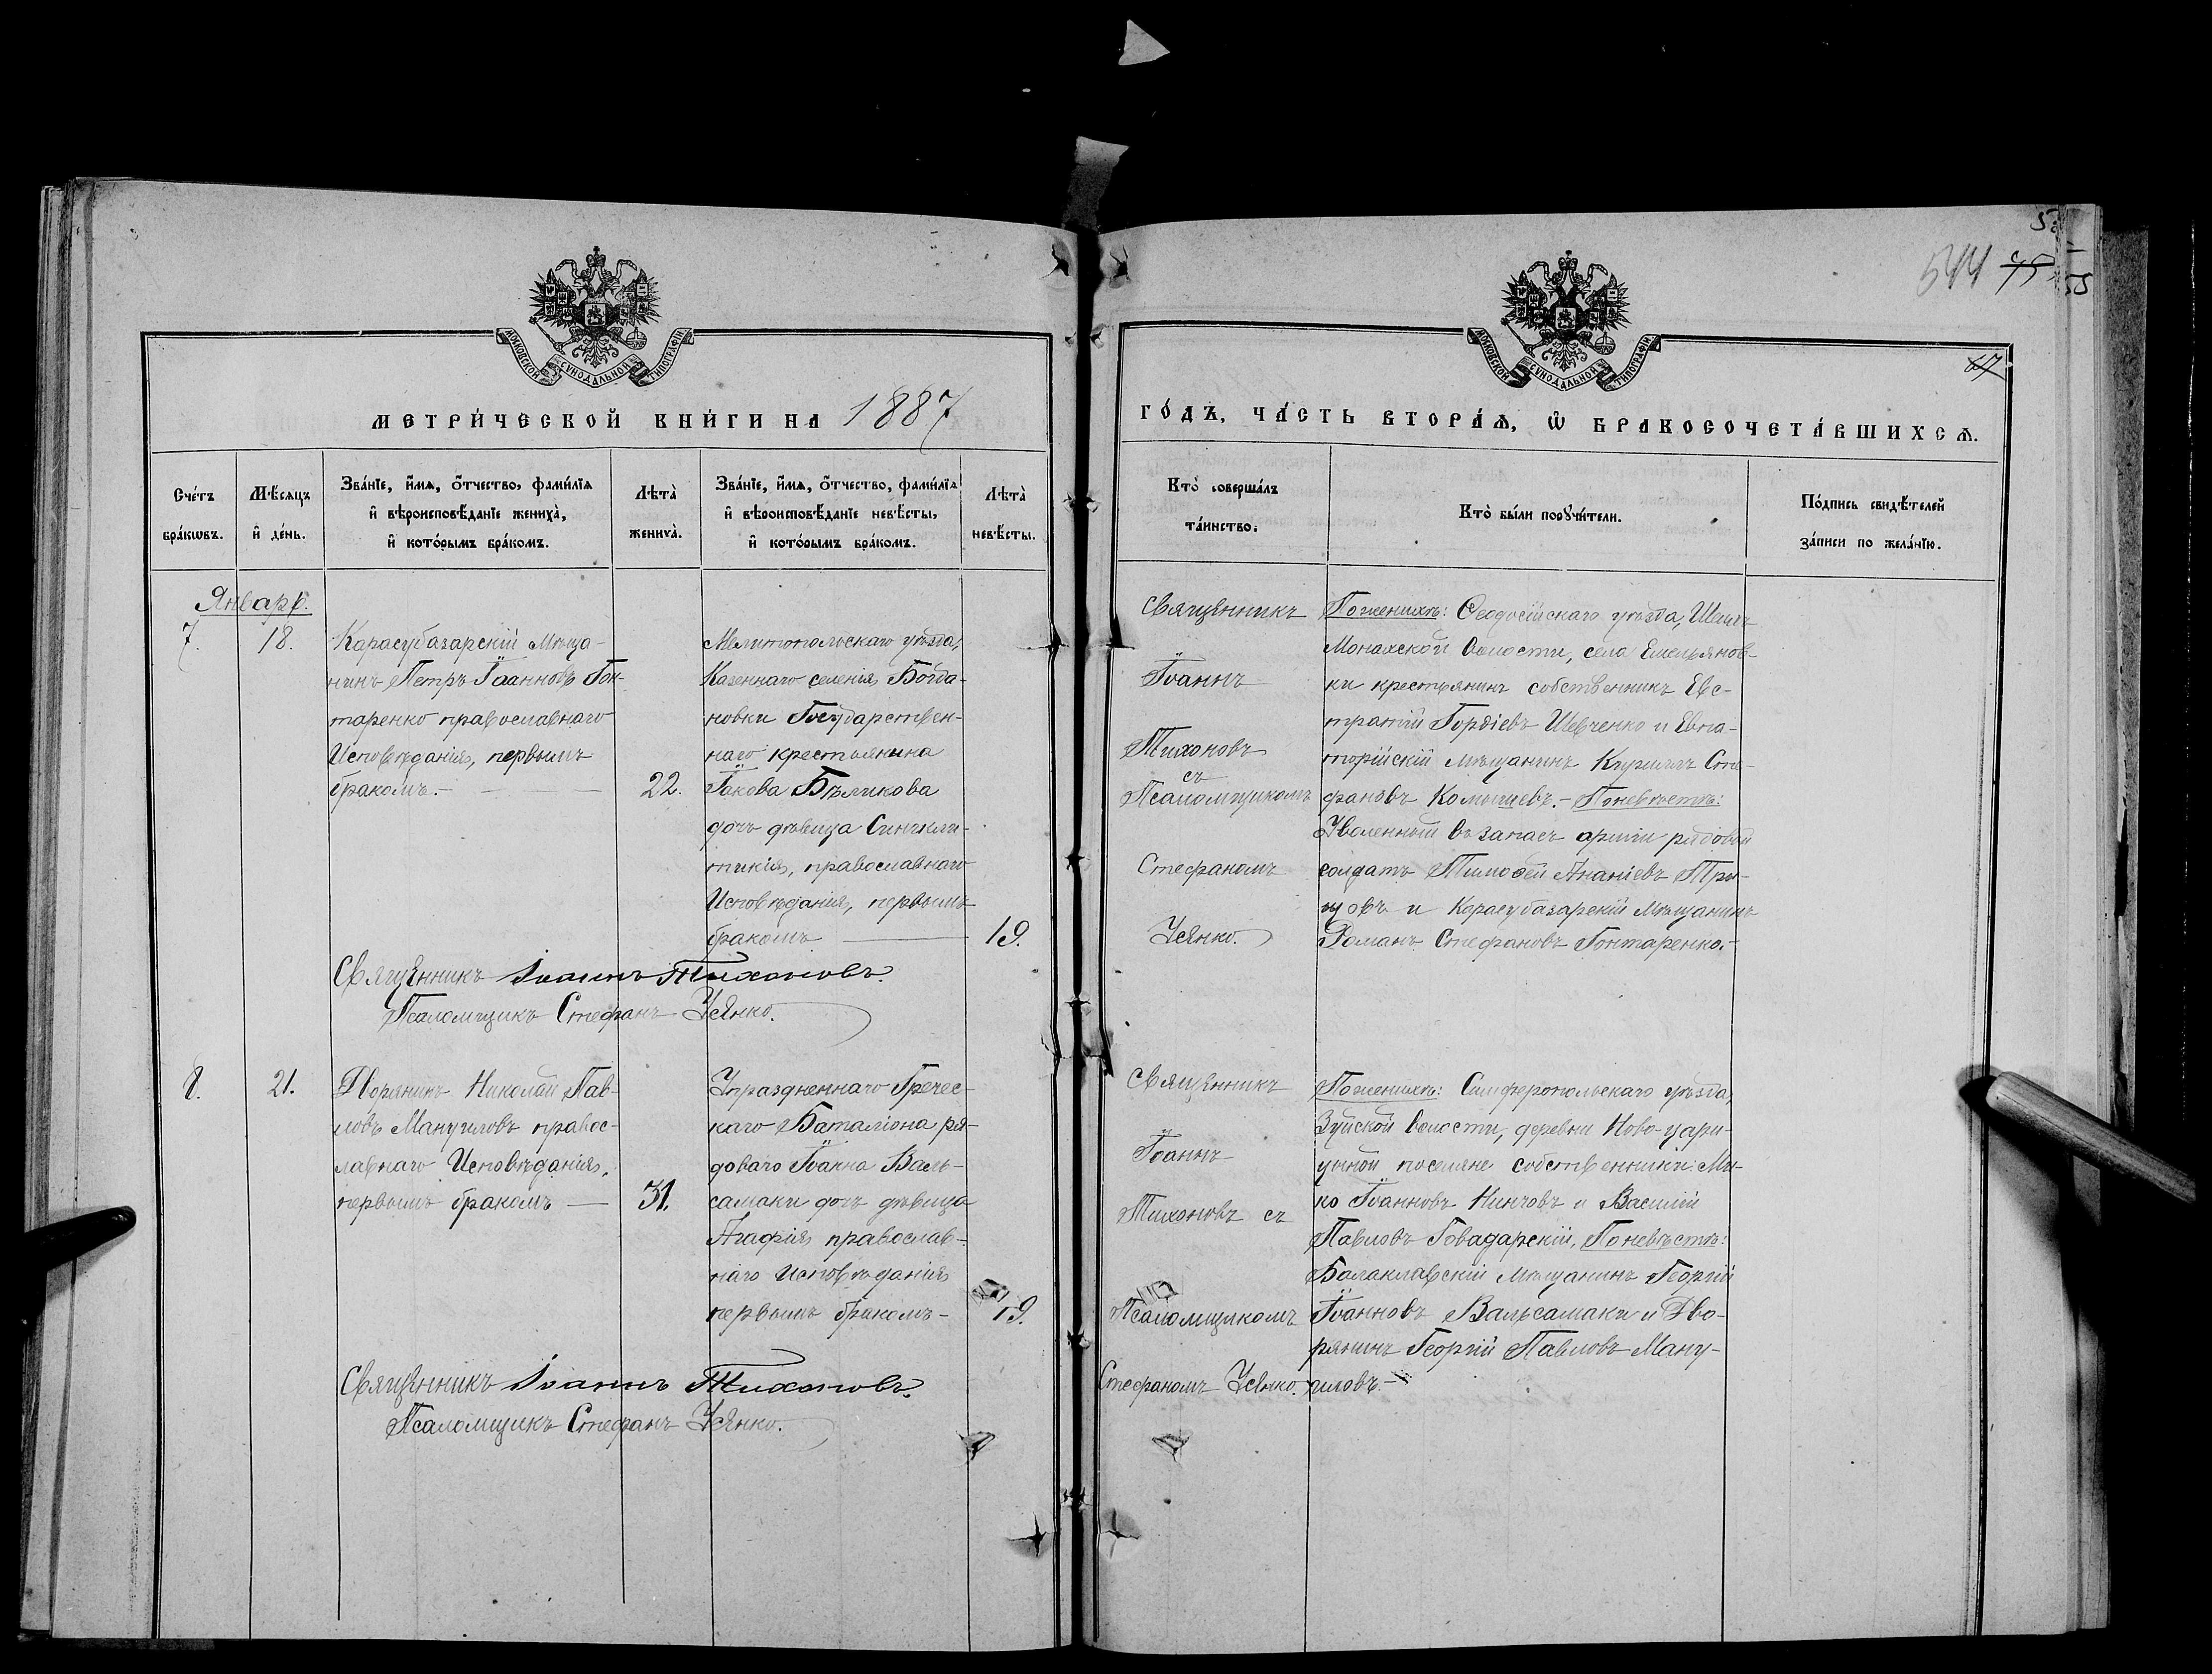 544 75
67
МОСКОВСКОЙ СѴНОДАЛЬНОЙ ТИПОГРАФІИ
МЕТРИ́ЧЕСКОЙ КНИ́ГИ НА 1887
Сче́тъ бра́кѡвъ.
Мѣ́сяцъ и҆ де́нь.
Зва́нїе, и҆́мѧ, ѻ҆́тчество, фами́лїѧ
и҆ вѣроисповѣ́данїе жениха̀,
и҆ кото́рымъ бра́комъ.
Лѣта̀ жениха̀.
Зва́нїе, и҆́мѧ, ѻ҆́тчество, фами́лїѧ
и҆ вѣроисповѣ́данїе невѣ́сты,
и҆ кото́рымъ бра́комъ.
Лѣта̀ невѣ́сты.
Январь.
7. 18.
Карасубазарскій мѣща-
нинъ Петръ Іоанновъ Гон-
таренко православнаго
Исповѣданія, первымъ
бракомъ.-
22.
Мелитопольскаго уѣзда,
Казеннаго селенія Богда-
новки Государствен-
наго крестьянина
Іакова Бѣликова
дочь дѣвица Синкли-
тикія, православнаго
Исповѣданія, первымъ
бракомъ
19.
Священникъ Іоаннъ Тихоновъ.
Псаломщикъ Стефанъ Усянко.
8. 21.
Дворянинъ Николай Пав-
ловъ Мануиловъ правос-
лавнаго Исповѣданія,
первымъ бракомъ
31.
Упраздненнаго Гречес-
каго Баталіона ря-
доваго Іоанна Валь-
самаки дочь дѣвица
Агафія православ-
наго Исповѣданія
первымъ бракомъ-
19.
Священникъ Іоаннъ Тихоновъ.
Псаломщикъ Стефанъ Усянко.
МОСКОВСКОЙ СѴНОДАЛЬНОЙ ТИПОГРАФІИ
ГО́ДЪ, ЧА́СТЬ ВТОРА́Ѧ, Ѡ҆ БРАКОСОЧЕТА́ВШИХСѦ.
Кто̀ соверша́лъ
та́инство.
Кто̀ бы́ли порꙋчи́тели.
По́дпись свидѣ́телей
за́писи по жела́нїю.
Священникъ
Іоаннъ
Тихоновъ
съ
Псаломщикомъ
Стефаномъ
Усянко.
По женихѣ: Ѳеодосійскаго уѣзда, Шеихъ
Монахской волости, села Емельянов-
ки крестьянинъ собственникъ Евс-
тратій Гордіевъ Шевченко и Евпа-
торійскій мѣщанинъ Кириллъ Сте-
фановъ По невѣстѣ:
Уволенный въ запасъ арміи рядовой
солдатъ Тимоѳей Ананіевъ
и Карасубазарскій мѣщанинъ
Романъ Стефановъ Гонтаренко.-
Священникъ
Іоаннъ
Тихоновъ съ
Псаломщикомъ
Стефаномъ Усянко.
По женихѣ: Симферопольскаго уѣзда,
Зуйской волости, деревни Ново-цари-
цыной поселяне собственники: Ми-
ко Іоанновъ Нинчовъ и Василій
Павловъ Говадарскій, По невѣстѣ:
Балаклавскій мѣщанинъ Георгій
Іоанновъ Вальсамаки и Дво-
рянинъ Георгій Павловъ Ману-
иловъ.-